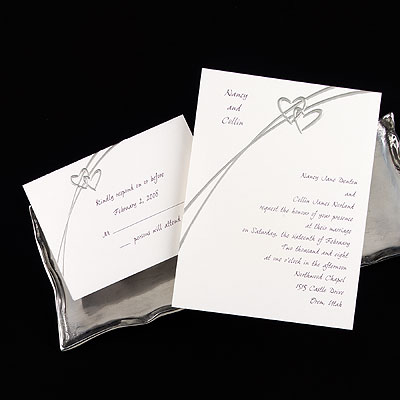 Nancy
and
Collin
Nancy Jane Denton
and
Collin James Norland
request the honour of your presence
at their marriage
on Saturday, the sixteenth of February
Two thousand and eight
at one o'clock in the afternoon
Northwood Chapel
1515 Castle Drive
Orem, Utah
Kindly respond on or before
February 2, 2008
M
persons will attend